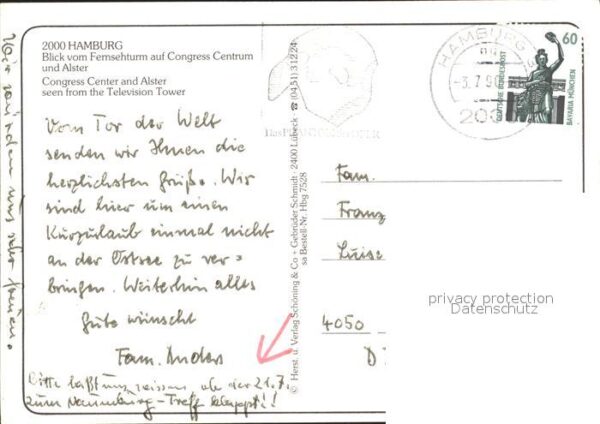 2000 HAMBURG
Blick vom Fernsehturm auf Congress Centrum
und Alster
Congress Center and Alster
seen from the Television Tower
Vom Tor der Welt
senden wir Ihnen die
herzlichsten Grüße. Wir
sind hier um einen
Kurzurlaub einmal nicht
an der Ostsee zu ver=
bringen. Weiterhin alles
Gute wünscht
Fam. Anders
Bitte laßt uns wissen, ob der 21.7.
zum Naumburg-Treff klappt!!
Wir würden uns sehr freuen.
© Herst. u. Verlag Schöning & Co + Gebrüder Schmidt · 2400 Lübeck · ☎ (0451) 31 22 24
sa Bestell-Nr. Hbg 7528
HAMBURG
-3.7.90
200
60
DEUTSCHE BUNDESPOST
BAVARIA MÜNCHEN
Fam.
Franz
Luise
4050
D
privacy protection
Datenschutz